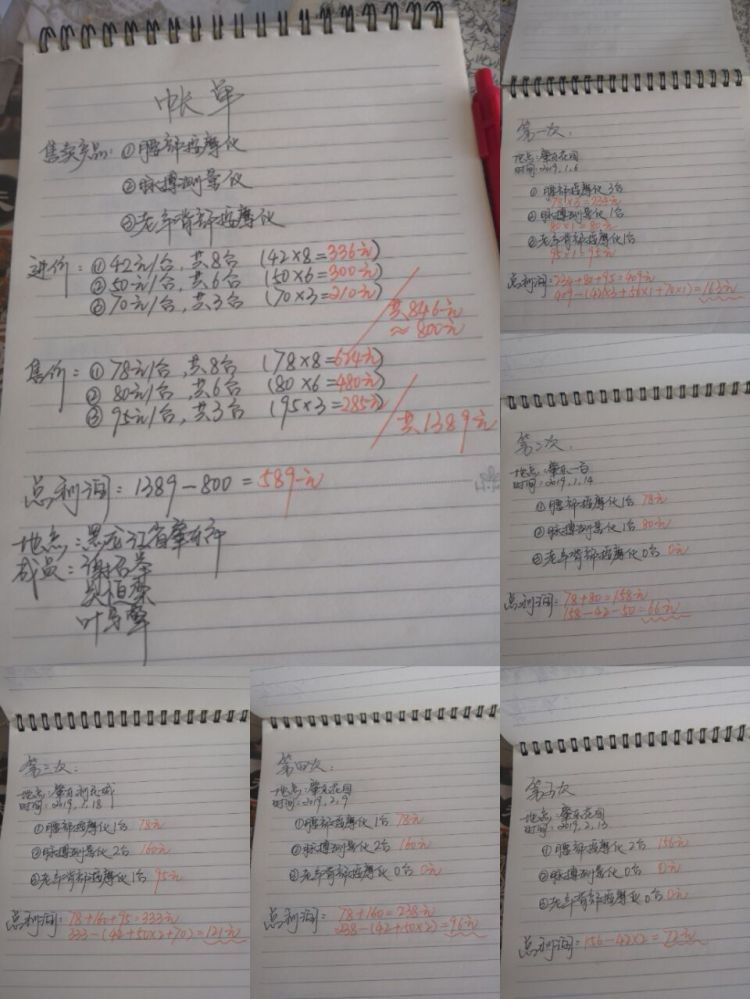 帐单
售卖产品：①腰部按摩仪
②脉搏测量仪
③老年背部按摩仪
进价：①42元/台，共8台 （42×8=336元）
②50元/台，共6台 （50×6=300元）
③70元/台，共3台 （70×3=210元）
共846元
≈800元
售价：①78元/台，共8台 （78×8=624元）
②80元/台，共6台 （80×6=480元）
③95元/台，共3台 （95×3=285元）
共1389元
总利润：1389-800=589元
地点：黑龙江省肇东市
成员：
第一次：
地点：肇东花园
时间：2019.1.6
①腰部按摩仪3台
78×3=234元
②脉搏测量仪1台
80×1=80元
③老年背部按摩仪1台
95×1=95元
总利润：234+80+95=409元
409-(42×3+50×1+70×1)=163元
第二次：
地点：肇东一百
时间：2019.1.14
①腰部按摩仪1台 78元
②脉搏测量仪1台 80元
③老年背部按摩仪0台 0元
总利润：78+80=158元
158-42-50=66元
第三次：
地点：肇东利民城
时间：2019.1.18
①腰部按摩仪1台 78元
②脉搏测量仪2台 160元
③老年背部按摩仪1台 95元
总利润：78+160+95=333元
333-(42+50×2+70)=121元
第四次：
地点：肇东花园
时间：2019.2.9
①腰部按摩仪1台 78元
②脉搏测量仪2台 160元
③老年背部按摩仪0台 0元
总利润：78+160=238元
238-(42+50×2)=96元
第五次
地点：肇东花园
时间：2019.2.13
①腰部按摩仪2台 156元
②脉搏测量仪0台 0元
③老年背部按摩仪0台 0元
总利润：156-42×2=72元